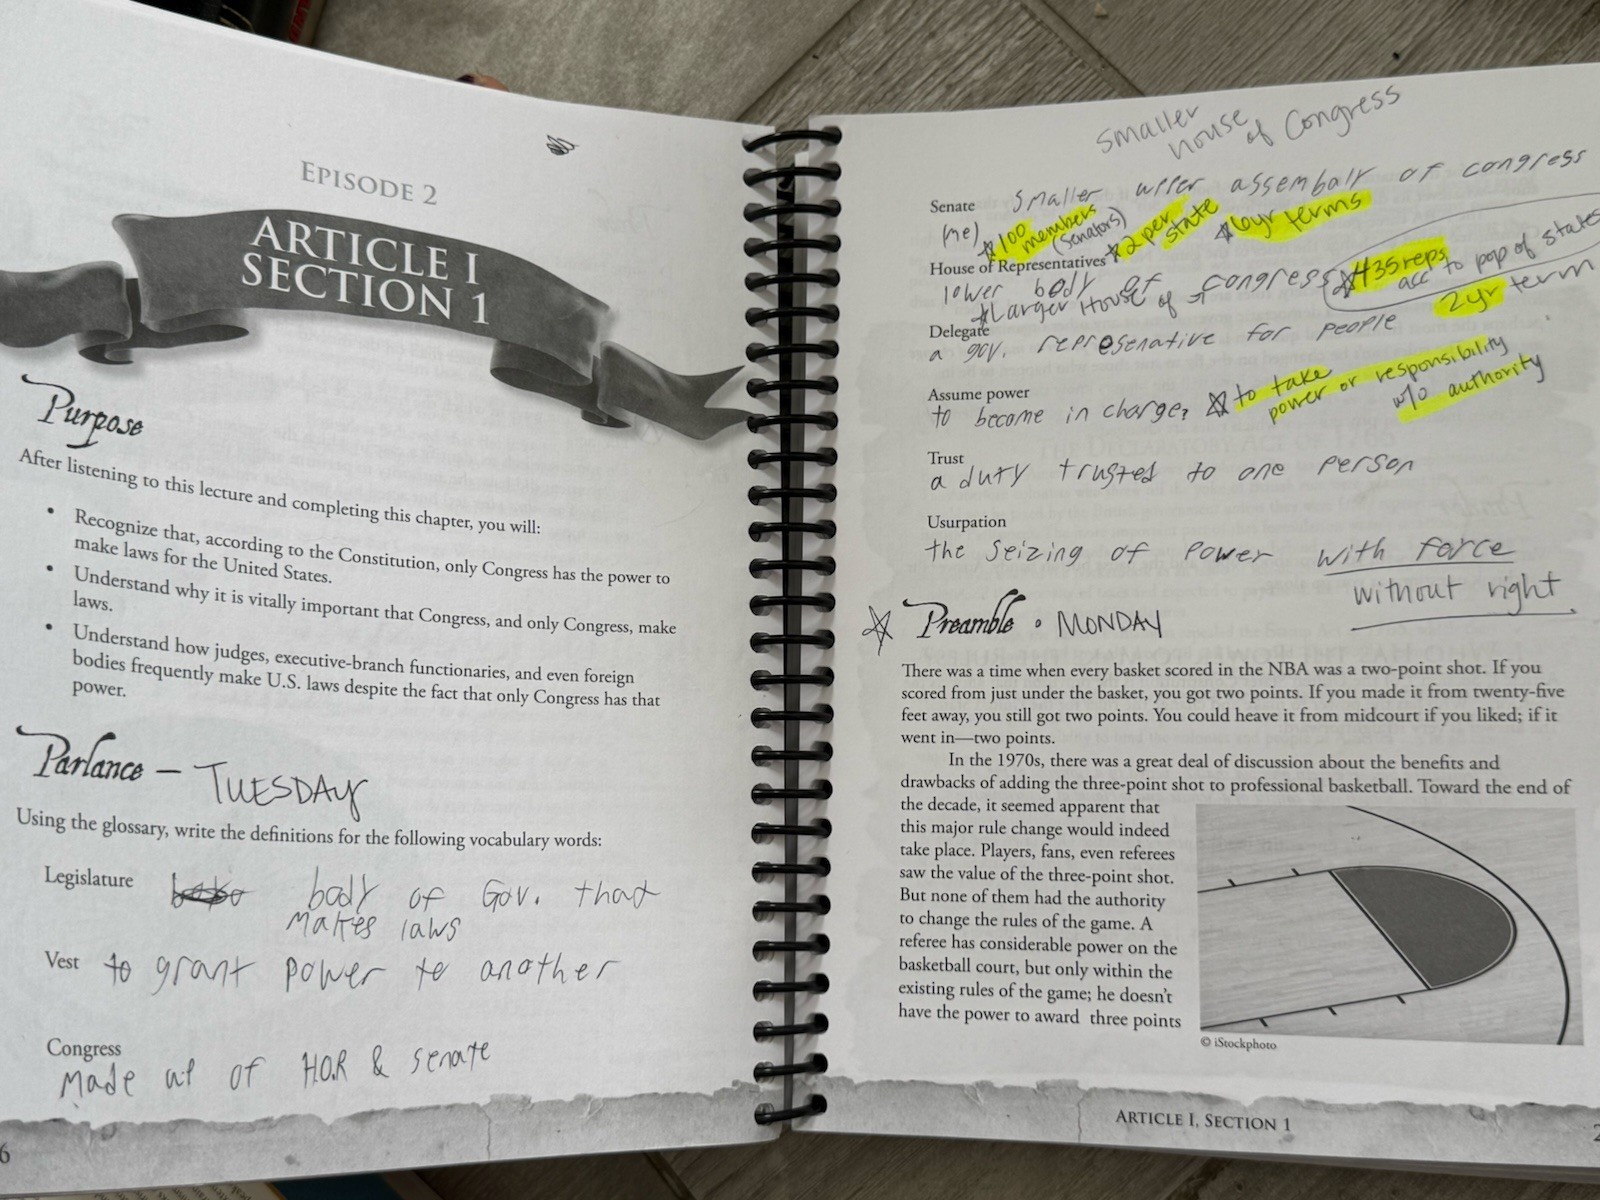 EPISODE 2
ARTICLE I
SECTION 1
Purpose
After listening to this lecture and completing this chapter, you will:
• Recognize that, according to the Constitution, only Congress has the power to
make laws for the United States.
• Understand why it is vitally important that Congress, and only Congress, make
laws.
• Understand how judges, executive-branch functionaries, and even foreign
bodies frequently make U.S. laws despite the fact that only Congress has that
power.
Parlance – TUESDAY
Using the glossary, write the definitions for the following vocabulary words:
Legislature body of Gov. that
makes laws
Vest to grant power to another
Congress
Made up of H.O.R & senate
6
smaller
house of Congress
Senate smaller upper assembaly of congress
(me) ☆100 members (senators) ☆2 per state ☆6yr terms
House of Representatives
lower body of congress ☆435 reps
acc to pop of states
☆Larger House of 2yr term
Delegate
a gov. represenative for people
Assume power
to become in charge, ☆ to take
power or responsibility
w/o authority
Trust
a duty trusted to one person
Usurpation
the seizing of power with force
without right.
☆ Preamble • MONDAY
There was a time when every basket scored in the NBA was a two-point shot. If you
scored from just under the basket, you got two points. If you made it from twenty-five
feet away, you still got two points. You could heave it from midcourt if you liked; if it
went in—two points.
In the 1970s, there was a great deal of discussion about the benefits and
drawbacks of adding the three-point shot to professional basketball. Toward the end of
the decade, it seemed apparent that
this major rule change would indeed
take place. Players, fans, even referees
saw the value of the three-point shot.
But none of them had the authority
to change the rules of the game. A
referee has considerable power on the
basketball court, but only within the
existing rules of the game; he doesn't
have the power to award three points
© iStockphoto
ARTICLE I, SECTION 1